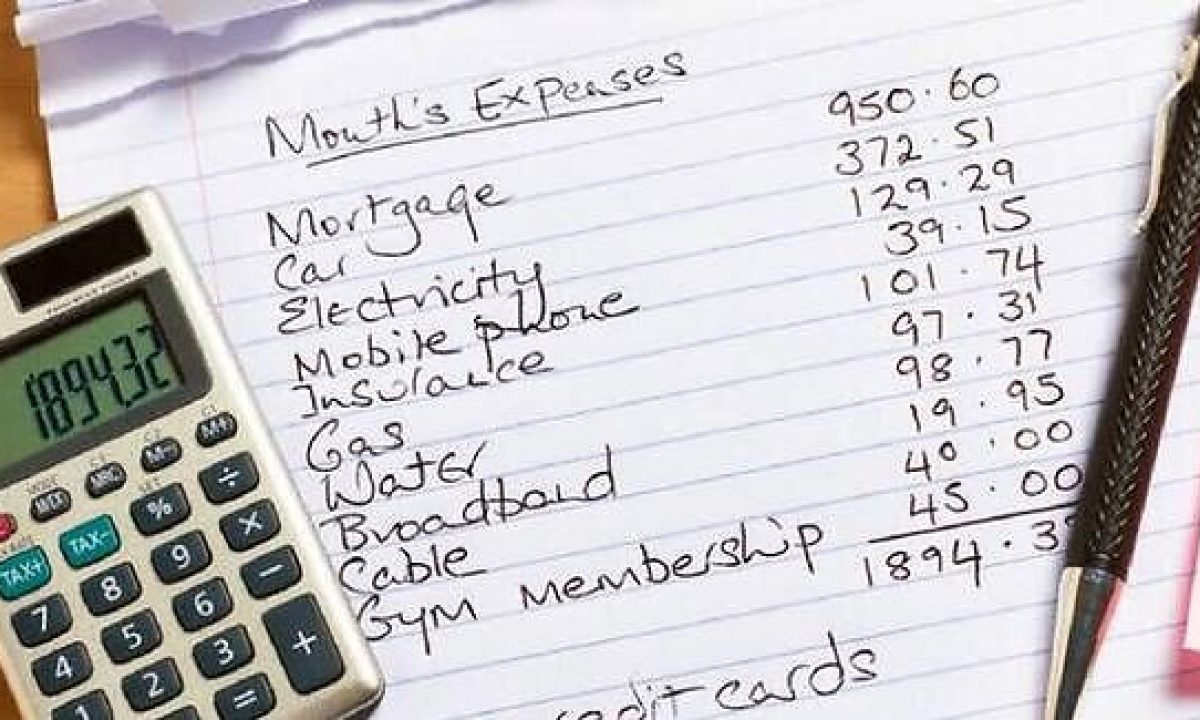 Month's Expenses
Mortgage 950.60
Car 372.51
Electricity 129.29
Mobile phone 39.15
Insurance 101.74
Gas 97.31
Water 98.77
Broadband 19.95
Cable 40.00
Gym membership 45.00
1894.3
cards
1894.32
MRC
M-
M+
%
÷
TAX+
TAX-
9
×
7
8
6
−
4
5
3
+
1
2
=